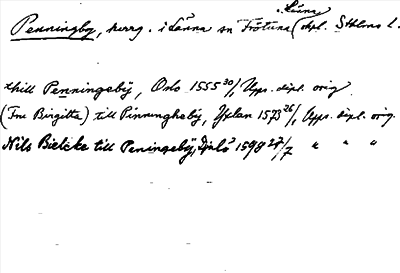 Länna
Penningby, herrg. i Länna sn Frötuna (skpl. Sthlms l.
thill Penningeby, Oslo 1555 30/1, Upps. dipl. orig.
(Fru Birgitta) till Pinningheby, 1573 26/1, Upps. dipl. orig.
Nils Bielcke till Peningeby, 1598 27/7 " " "